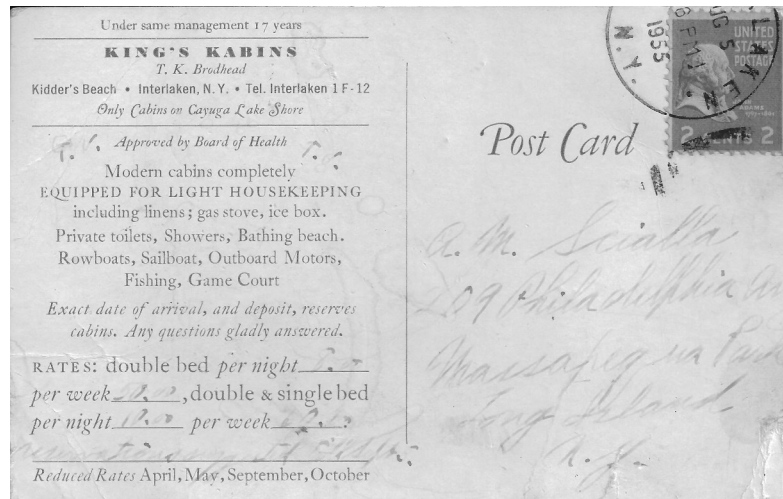 Under same management 17 years
KING'S KABINS
T. K. Brodhead
Kidder's Beach • Interlaken, N.Y. • Tel. Interlaken 1 F-12
Only Cabins on Cayuga Lake Shore
Approved by Board of Health
T.V. T.V.
Modern cabins completely
EQUIPPED FOR LIGHT HOUSEKEEPING
including linens; gas stove, ice box.
Private toilets, Showers, Bathing beach.
Rowboats, Sailboat, Outboard Motors,
Fishing, Game Court
Exact date of arrival, and deposit, reserves
cabins. Any questions gladly answered.
RATES: double bed per night
per week , double & single bed
per night 10.00 per week
Reduced Rates April, May, September, October
Post Card
AUG 5
6 PM
1955
N.Y.
UNITED
STATES
POSTAGE
ADAMS
2 CENTS 2
A. M. Scialla
209 Philadelphia
Massapequa Park
Long Island
N.Y.